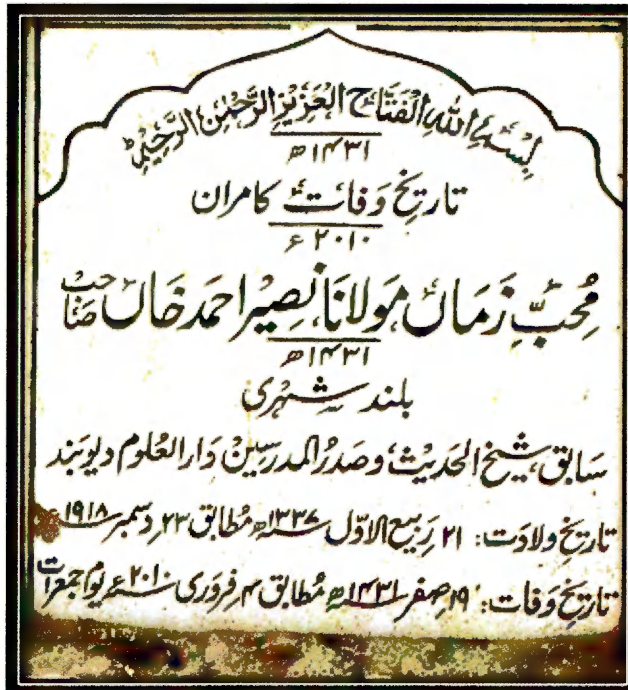 بِسْمِ اللهِ الْفَتَّاحِ الْعَزِيْزِ الرَّحْمٰنِ الرَّحِيْمِ
۱۴۳۱ھ
تاریخِ وَفات کامران
۲۰۱۰ء
مُحبِّ زَمَاں مَولانا نَصِیر احمد خَاں صَاحب
۱۴۳۱ھ
بلند شہری
سَابق شیخ الحَدیث وَصَدرُ المدرسِین دَارالعُلوم دیوبند
تاریخِ ولادَت: ۲۱ رَبیع الاوّل ۱۳۳۷ھ مُطابق ۲۳ دِسمبر ۱۹۱۸
تاریخِ وَفات: ۱۹ صفر ۱۴۳۱ھ مُطابق ۴ فِروَری ۲۰۱۰ء یوم جمعرات